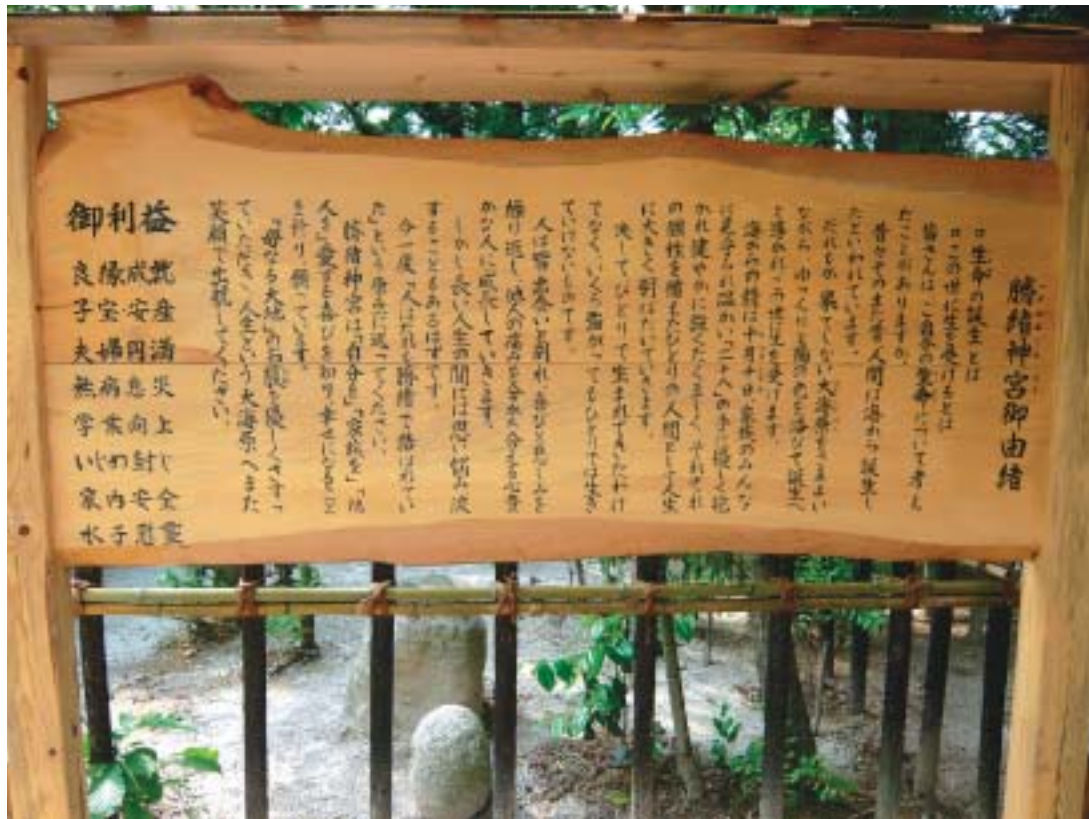 臍緒神宮御由緒
□生命の誕生とは
□この世に生を受けるとは
皆さんはご自分の生命について考え
たことがありますか。
昔からのまた昔人間は海から誕生し
たといわれています。
だれもが果てしない大海原をさまよい
ながら ゆっくりと陽の光を浴びて誕生へ
と導かれ この世に生を受けます。
海からの時は十月十日 家族のみんな
に見守られ温かい の手に優しく抱
かれ健やかに強くたくましく それぞれ
の個性を備えたひとりの人間として人生
に大きく羽ばたいていきます。
決してひとりで生まれてきたわけ
でなく、いくら強がってもひとりでは生き
ていけないものです。
人は皆出会いと別れ 喜びと悲しみを
繰り返し 他人の痛みを分かち合える心豊
かな人に成長していきます。
しかし長い人生の間には思い切り涙
することもあるはずです。
今一度「人はだれも臍緒で結ばれてい
た」という原点に返ってください。
臍緒神宮は「自分を」「家族を」「他
人を」愛する喜びを知り 幸せになること
を祈り 願っています。
「母なる大地」のお腹を優しくさすっ
ていただき 人生という大海原へまた
笑顔で出航してください。
御利益
良縁成就
子宝安産
夫婦円満
無病息災
学業向上
いじめ封じ
家内安全
水子慰霊